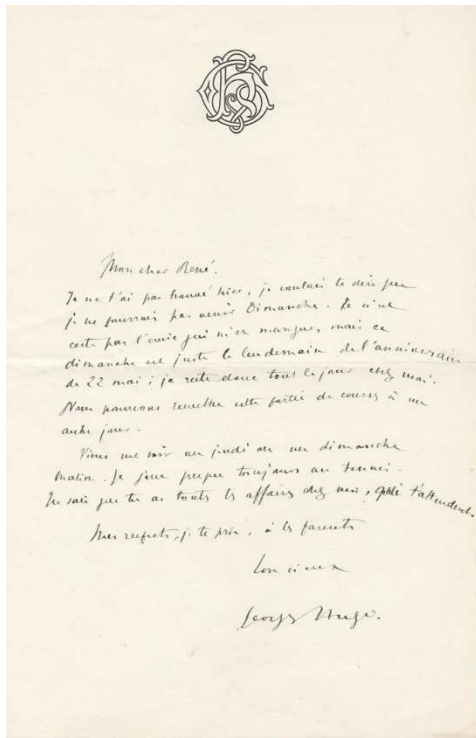 Mon cher René.
Je ne t'ai pas trouvé hier, je voulais te dire que
je ne pourrais pas venir Dimanche. Ce n'est
certe pas l'envie qui m'en manque, mais ce
dimanche est juste le lendemain de l'anniversaire
de 22 mai ; je reste donc tout le jour chez moi.
Nous pourrons remettre cette partie de courses à un
autre jour.
Viens me voir un jeudi ou un dimanche
matin. Je joue presque toujours au tennis.
Tu sais que tu as toutes tes affaires chez moi, qui t'attendent.
Mes respects, je te prie, à tes parents
Ton vieux
Georges Hugo.